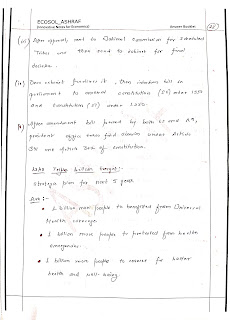 ECOSOL_ASHRAF
(Innovative Notes for Economics)
Answer Booklet
(iii) After approval, sent to National Commission for Scheduled
Tribes and then send to cabinet for final
decision.
(iv) Once cabinet finalises it, then introduce bill in
parliament to amend constitution (SC) order 1950
and constitution (ST) order 1950.
(v) After amendment bill passed by both LS and RS,
president gives final decision under Article
341 and Article 342 of constitution.
WHO Triple billion target:-
Strategic plan for next 5 year
Aim :-
• 1 billion more people to benefitted from Universal
Health coverage.
• 1 billion more people to protected from health
emergencies.
• 1 billion more people to ensure for better
health and well-being.